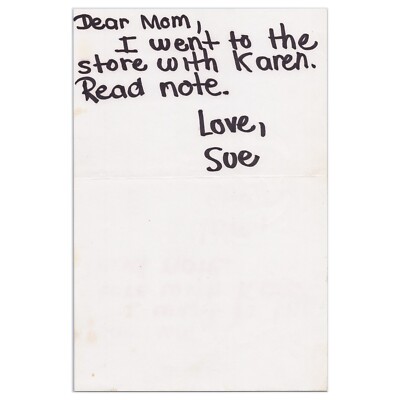 Dear Mom,
I went to the
store with Karen.
Read note.
Love,
Sue